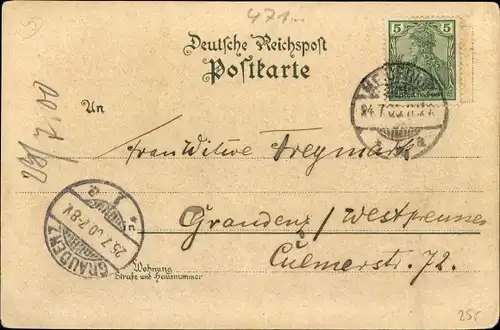 471...
Deutsche Reichspost
Postkarte
5 5
24.7.00
An
Frau Witwe Freymark
28/7.00
in Graudenz/Westpreussen
Culmerstr. 72.
GRAUDENZ
25.7.00.7-8V.
Wohnung
Straße und Hausnummer
25,-